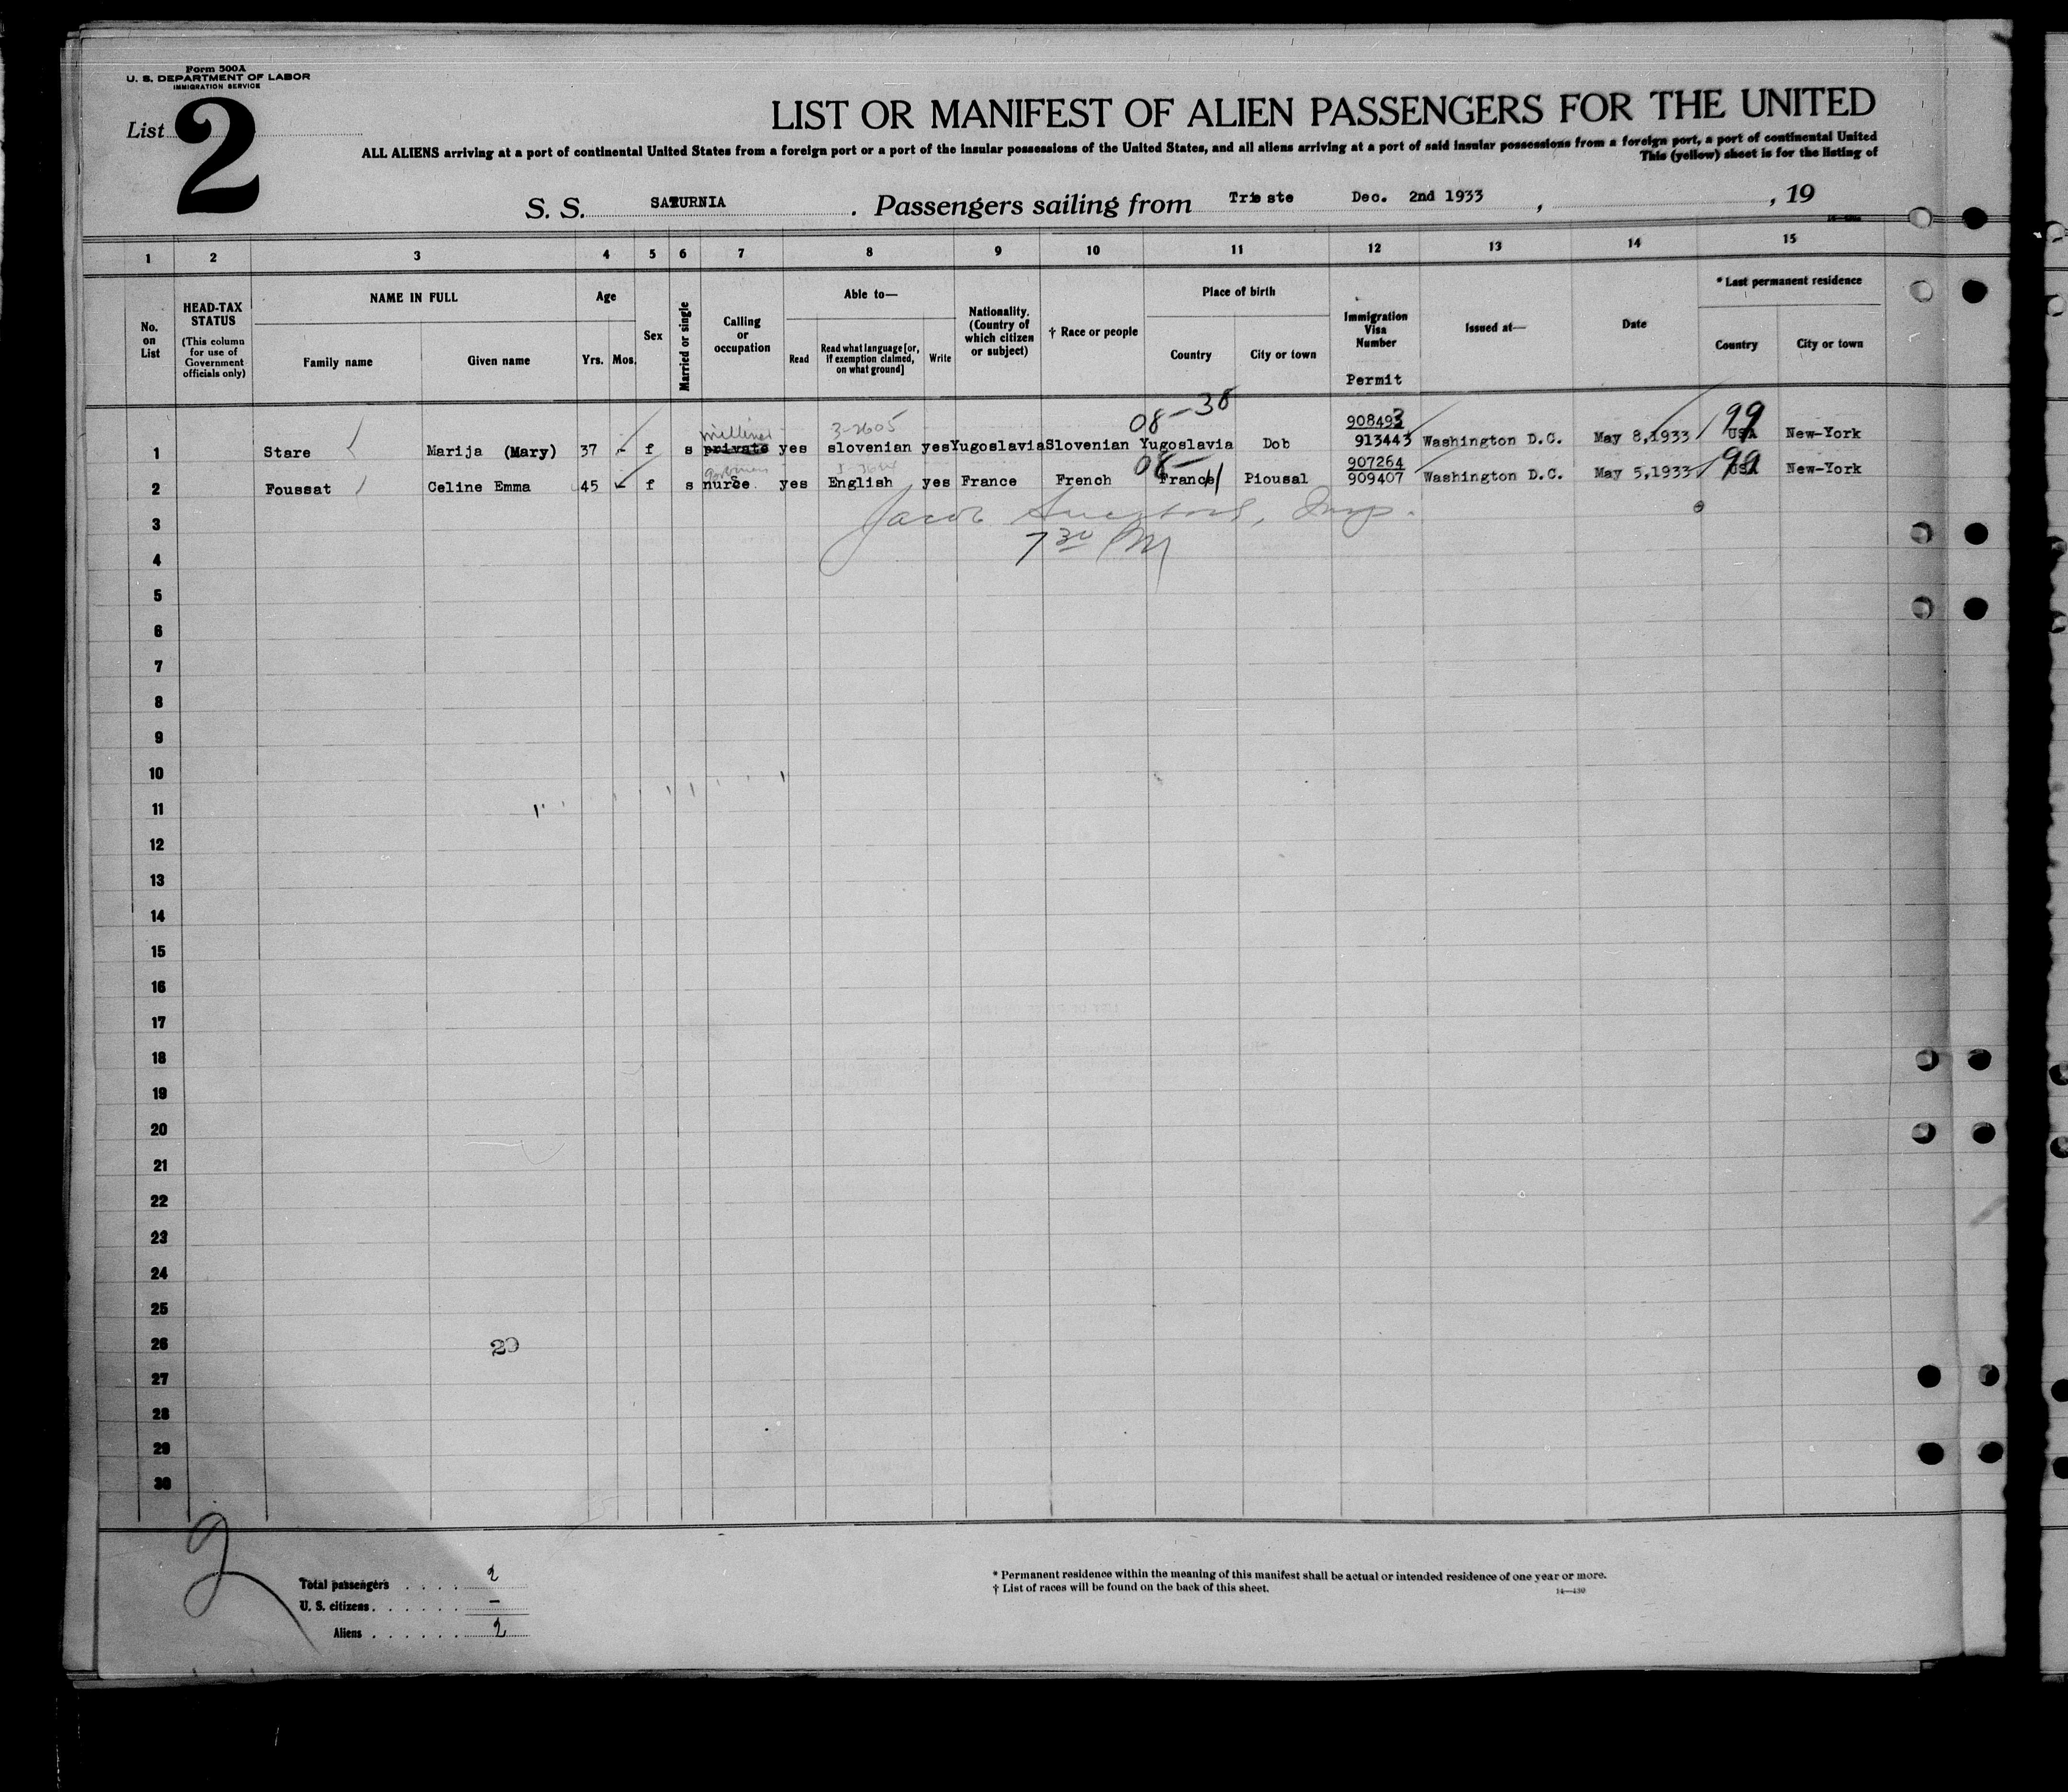 Form 500A
U. S. DEPARTMENT OF LABOR
IMMIGRATION SERVICE
List 2
LIST OR MANIFEST OF ALIEN PASSENGERS FOR THE UNITED
ALL ALIENS arriving at a port of continental United States from a foreign port or a port of the insular possessions of the United States, and all aliens arriving at a port of said insular possessions from a foreign port, a port of continental United
This (yellow) sheet is for the listing of
S. S. SATURNIA . Passengers sailing from Trieste Dec. 2nd 1933 , , 19
1 2 3 4 5 6 7 8 9 10 11 12 13 14 15
No. on List
HEAD-TAX STATUS
(This column for use of Government officials only)
NAME IN FULL
Family name Given name
Age
Yrs. Mos.
Sex
Married or single
Calling or occupation
Able to—
Read Read what language [or, if exemption claimed, on what ground] Write
Nationality. (Country of which citizen or subject)
† Race or people
Place of birth
Country City or town
Immigration Visa Number
Permit
Issued at—
Date
* Last permanent residence
Country City or town
milliner 3-2605 08-38 908493 99
1 Stare Marija (Mary) 37 - f s private yes slovenian yes Yugoslavia Slovenian Yugoslavia Dob 913443 Washington D.C. May 8,1933 USA New-York
08- 907264 99
2 Foussat Celine Emma 45 - f s nurse yes English yes France French France Piousal 909407 Washington D.C. May 5,1933 USA New-York
Jacob
3
7 30 PM
4
5
6
7
8
9
10
11
12
13
14
15
16
17
18
19
20
21
22
23
24
25
26
27
28
29
30
2
Total passengers . . . . 2
U. S. citizens . . . . . . –
Aliens . . . . . . 2
* Permanent residence within the meaning of this manifest shall be actual or intended residence of one year or more.
† List of races will be found on the back of this sheet.
14—430